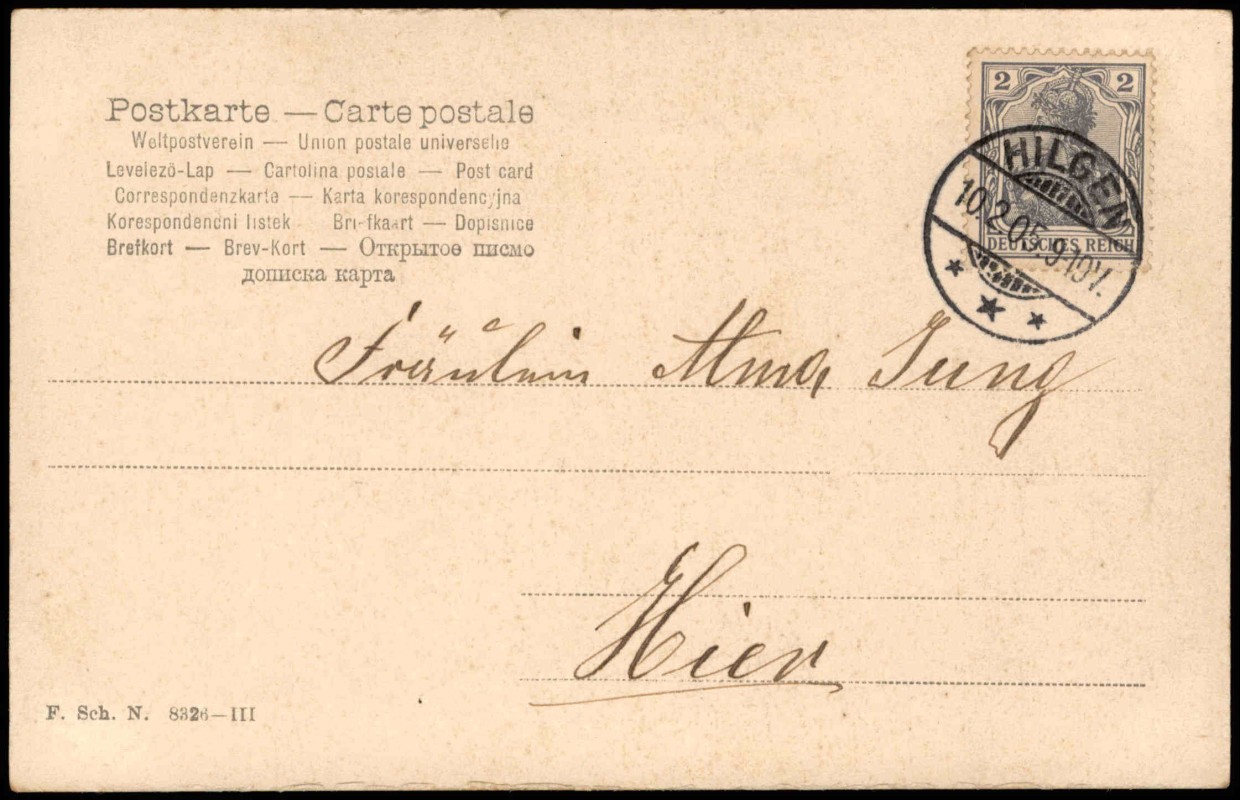 Postkarte — Carte postale
Weltpostverein — Union postale universelle
Levelező-Lap — Cartolina postale — Post card
Correspondenzkarte — Karta korespondencyjna
Korespondencni listek Briefkaart — Dopisnice
Brefkort — Brev-Kort — Открытое писмо
дописка карта
2 2
DEUTSCHES REICH
HILGEN
10.2.05.9-10V.
Fräulein Alma Jung
Hier
F. Sch. N. 8326—III